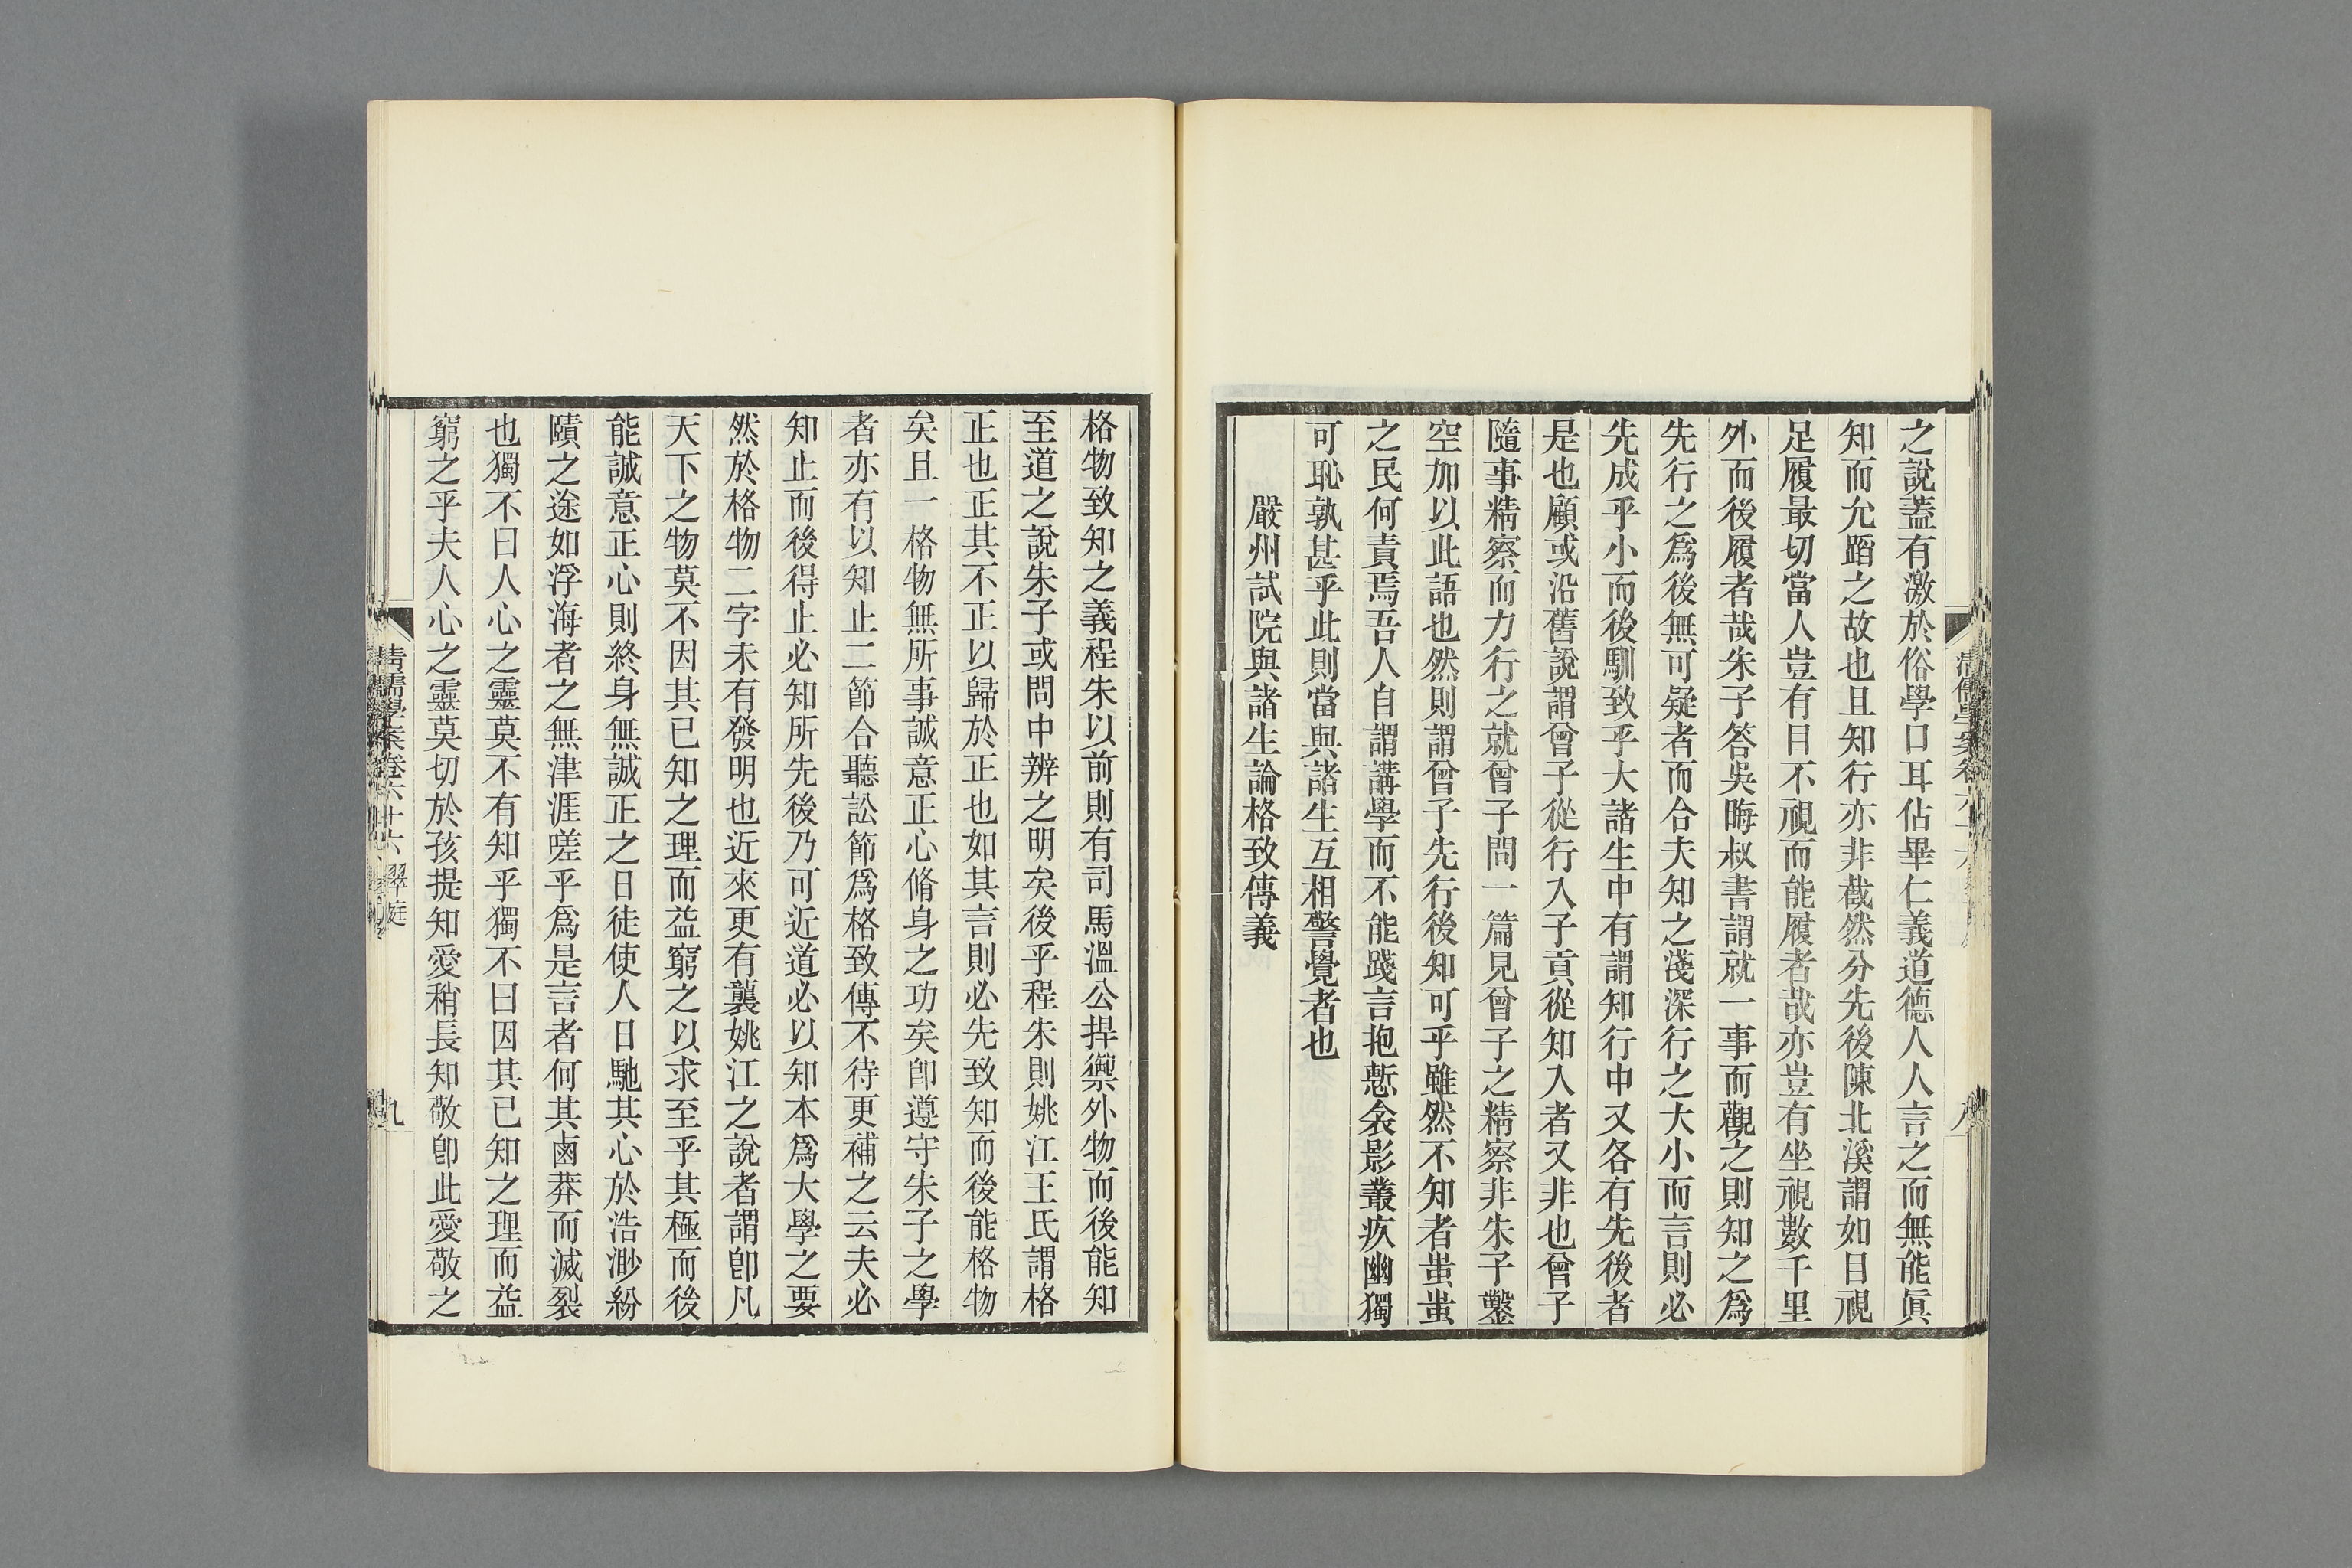 之說蓋有激於俗學口耳佔畢仁義道德人人言之而無能眞
知而允蹈之故也且知行亦非截然分先後陳北溪謂如目視
足履最切當人豈有目不視而能履者哉亦豈有坐視數千里
外而後履者哉朱子答吳晦叔書謂就一事而觀之則知之爲
先行之爲後無可疑者而合夫知之淺深行之大小而言則必
先成乎小而後馴致乎大諸生中有謂知行中又各有先後者
是也顧或沿舊說謂曾子從行入子貢從知入者又非也曾子
隨事精察而力行之就曾子問一篇見曾子之精察非朱子鑿
空加以此語也然則謂曾子先行後知可乎雖然不知者蚩蚩
之民何責焉吾人自謂講學而不能踐言抱慙衾影叢疚幽獨
可恥孰甚乎此則當與諸生互相警覺者也
嚴州試院與諸生論格致傳義
格物致知之義程朱以前則有司馬溫公捍禦外物而後能知
至道之說朱子或問中辨之明矣後乎程朱則姚江王氏謂格
正也正其不正以歸於正也如其言則必先致知而後能格物
矣且一格物無所事誠意正心脩身之功矣卽遵守朱子之學
者亦有以知止二節合聽訟節爲格致傳不待更補之云夫必
知止而後得止必知所先後乃可近道必以知本爲大學之要
然於格物二字未有發明也近來更有襲姚江之說者謂卽凡
天下之物莫不因其已知之理而益窮之以求至乎其極而後
能誠意正心則終身無誠正之日徒使人日馳其心於浩渺紛
賾之途如浮海者之無津涯嗟乎爲是言者何其鹵莽而滅裂
也獨不曰人心之靈莫不有知乎獨不曰因其已知之理而益
窮之乎夫人心之靈莫切於孩提知愛稍長知敬卽此愛敬之
清儒學案卷六十六 翠庭
九